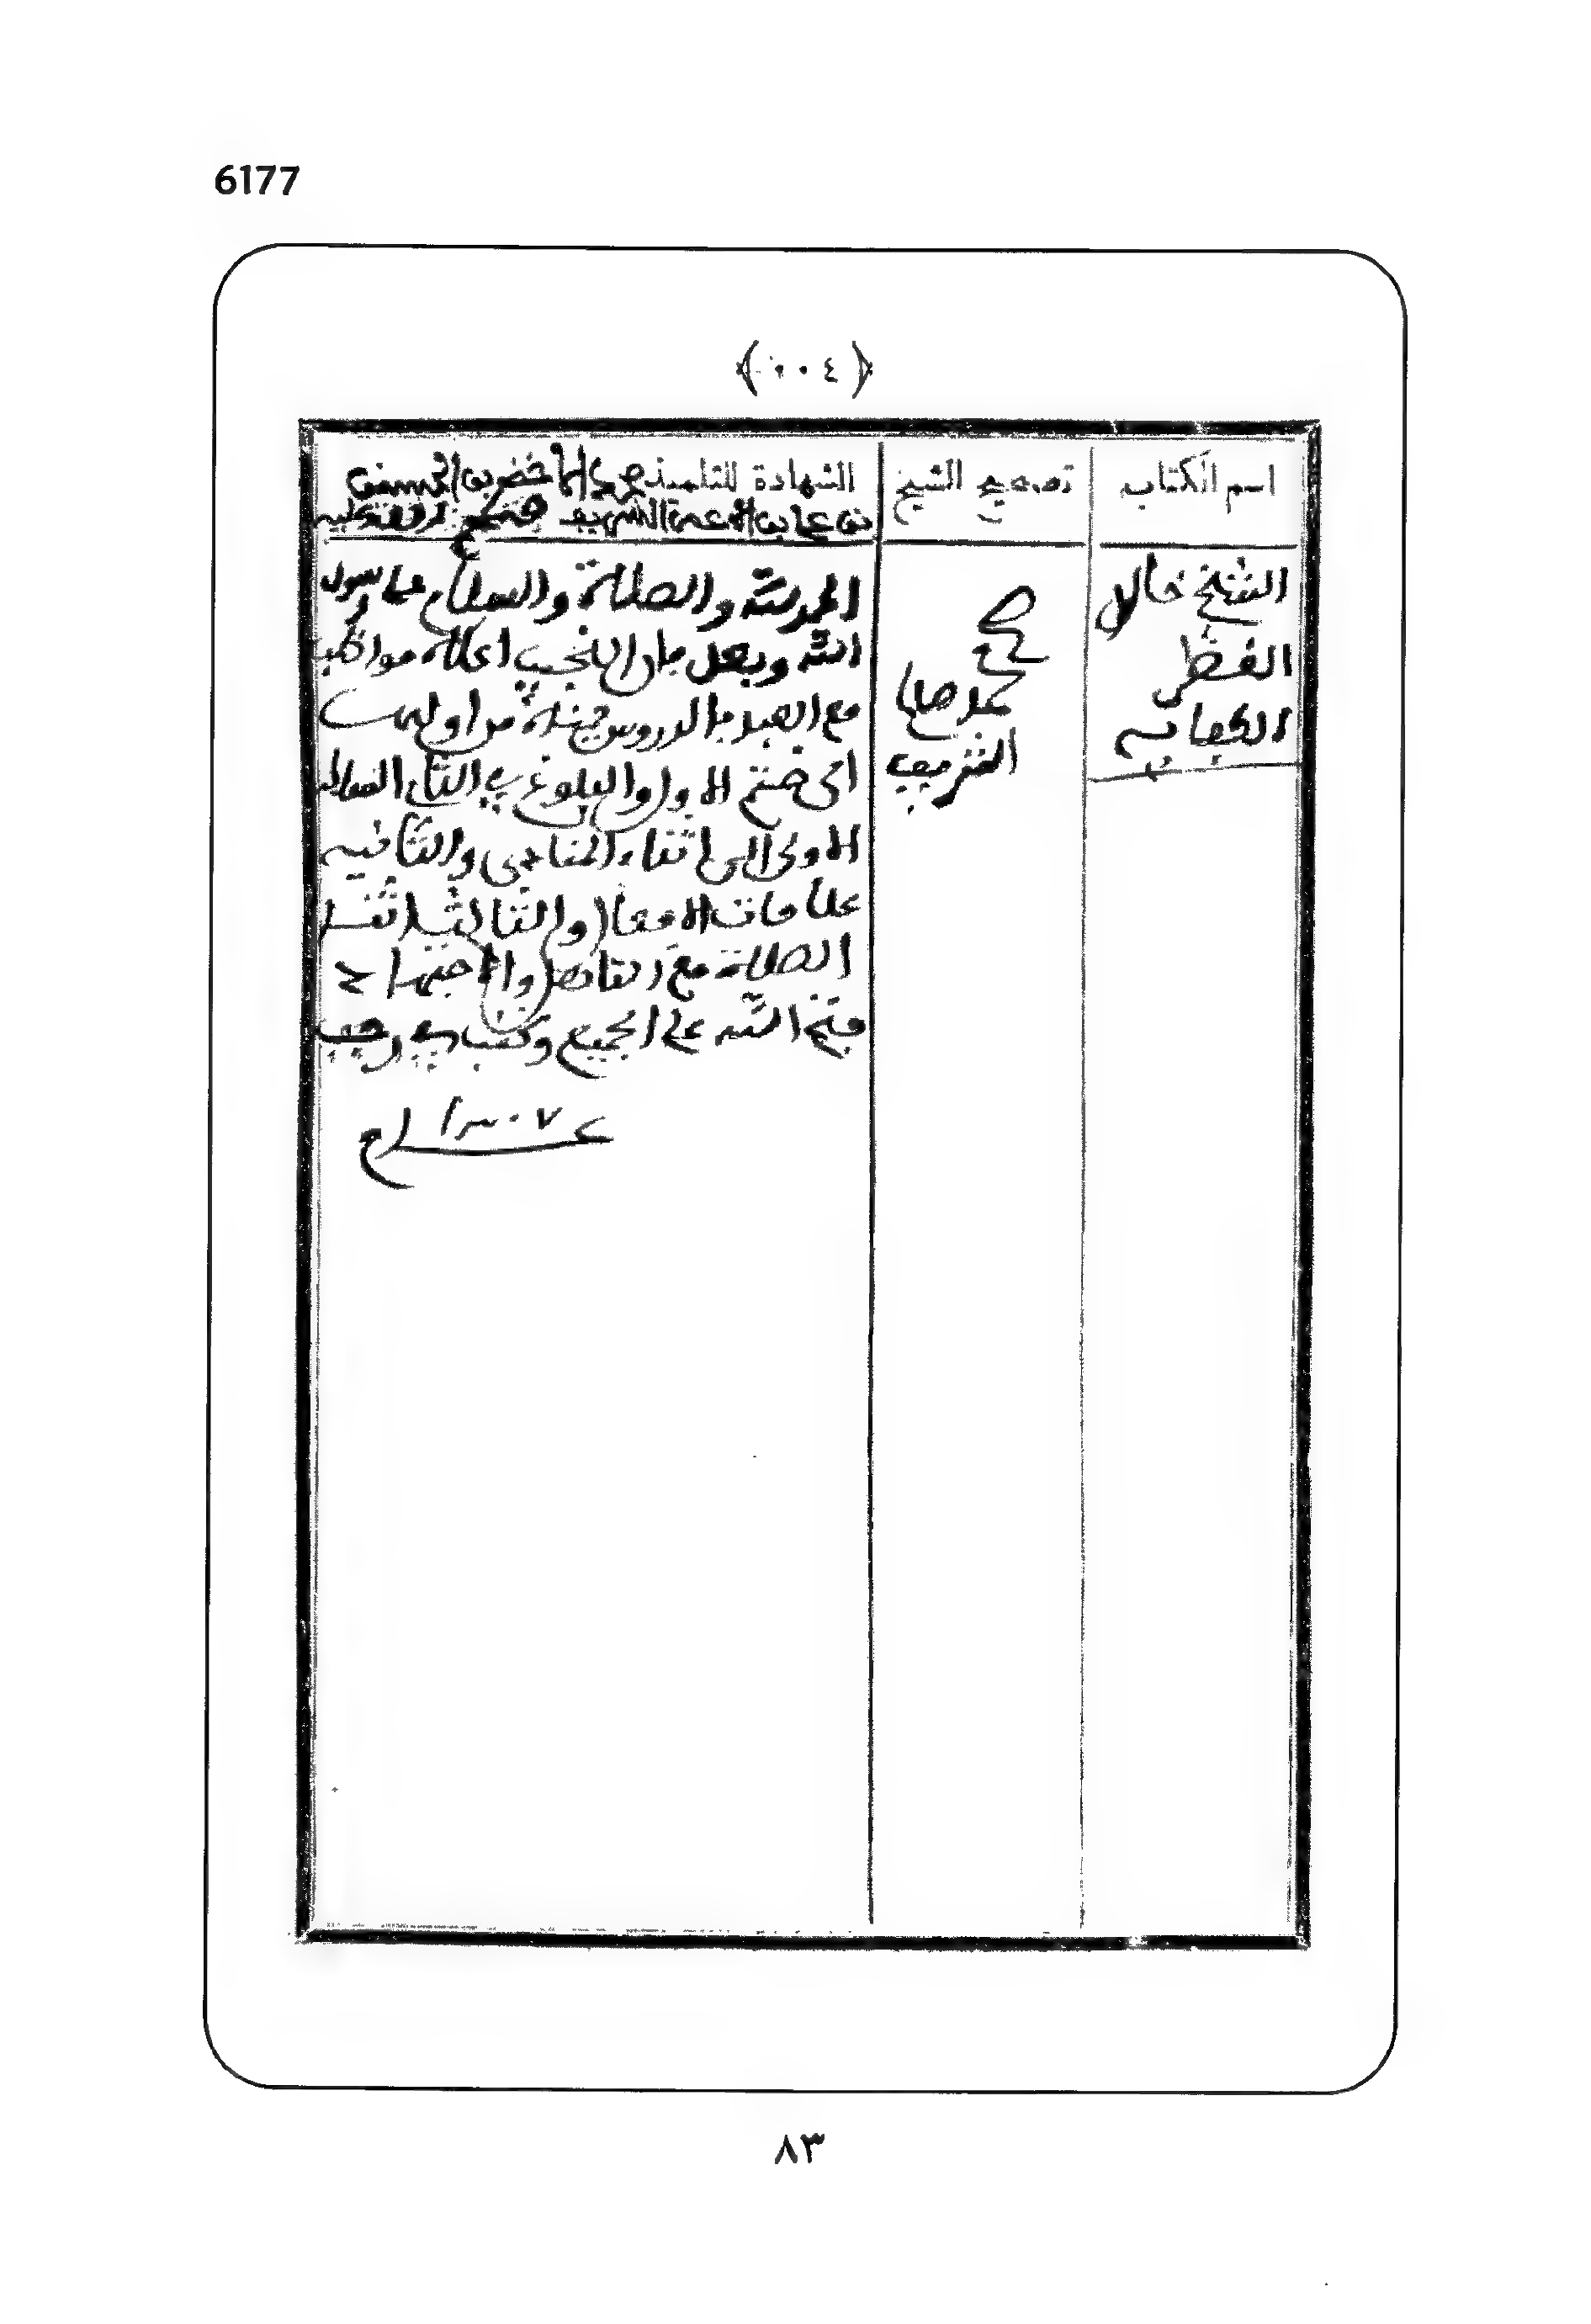 6177
﴿ ٠٠٤ ﴾
اسم الكتاب
تصحيح الشيخ
الشهادة للتلميذ محمد الاخضر بن الحسين
بن علي بن عمر الشريف
الشيخ خالد
القطر
الكفاية
صح
محمد صالح
الشريف
الحمد لله والصلاة والسلام على رسول
الله وبعد فان النجيب اعلاه مواظب
مع الدروس من اوليت
الى ختم الاول والبلوغ في الثاني
الاولى الى اثناء المناجى والثانية
علامات الافعال والثالث اثناء
الصلاة مع والاجتهاد
فتح الله على الجميع وكتب في رجب
عام ١٣٠٧
٨٣